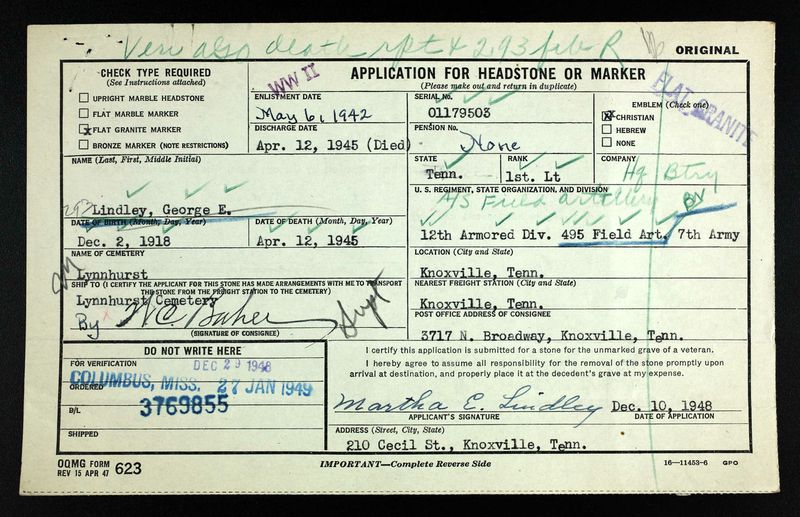 Veri also death rpt & 293 file R
ORIGINAL
CHECK TYPE REQUIRED
(See Instructions attached)
UPRIGHT MARBLE HEADSTONE
FLAT MARBLE MARKER
x FLAT GRANITE MARKER
BRONZE MARKER (NOTE RESTRICTIONS)
WW II
APPLICATION FOR HEADSTONE OR MARKER
(Please make out and return in duplicate)
FLAT GRANITE
ENLISTMENT DATE
May 6, 1942
DISCHARGE DATE
Apr. 12, 1945 (Died)
SERIAL No.
O1179503
PENSION No.
None
EMBLEM (Check one)
x CHRISTIAN
HEBREW
NONE
NAME (Last, First, Middle Initial)
Lindley, George E.
STATE
Tenn.
RANK
1st. Lt
COMPANY
Hq Btry
U. S. REGIMENT, STATE ORGANIZATION, AND DIVISION
Field Artillery
12th Armored Div. 495 Field Art. 7th Army
DATE OF BIRTH (Month, Day, Year)
Dec. 2, 1918
DATE OF DEATH (Month, Day, Year)
Apr. 12, 1945
NAME OF CEMETERY
Lynnhurst
LOCATION (City and State)
Knoxville, Tenn.
SHIP TO (I CERTIFY THE APPLICANT FOR THIS STONE HAS MADE ARRANGEMENTS WITH ME TO TRANSPORT
THE STONE FROM THE FREIGHT STATION TO THE CEMETERY)
Lynnhurst Cemetery
By W.C. Baker Supt
(SIGNATURE OF CONSIGNEE)
NEAREST FREIGHT STATION (City and State)
Knoxville, Tenn.
POST OFFICE ADDRESS OF CONSIGNEE
3717 N. Broadway, Knoxville, Tenn.
DO NOT WRITE HERE
FOR VERIFICATION
DEC 29 1948
ORDERED
COLUMBUS, MISS. 27 JAN 1949
B/L
3769855
SHIPPED
I certify this application is submitted for a stone for the unmarked grave of a veteran.
I hereby agree to assume all responsibility for the removal of the stone promptly upon
arrival at destination, and properly place it at the decedent's grave at my expense.
Martha E. Lindley Dec. 10, 1948
APPLICANT'S SIGNATURE DATE OF APPLICATION
ADDRESS (Street, City, State)
210 Cecil St., Knoxville, Tenn.
OQMG FORM
REV 15 APR 47 623
IMPORTANT—Complete Reverse Side
16—11453-6 GPO